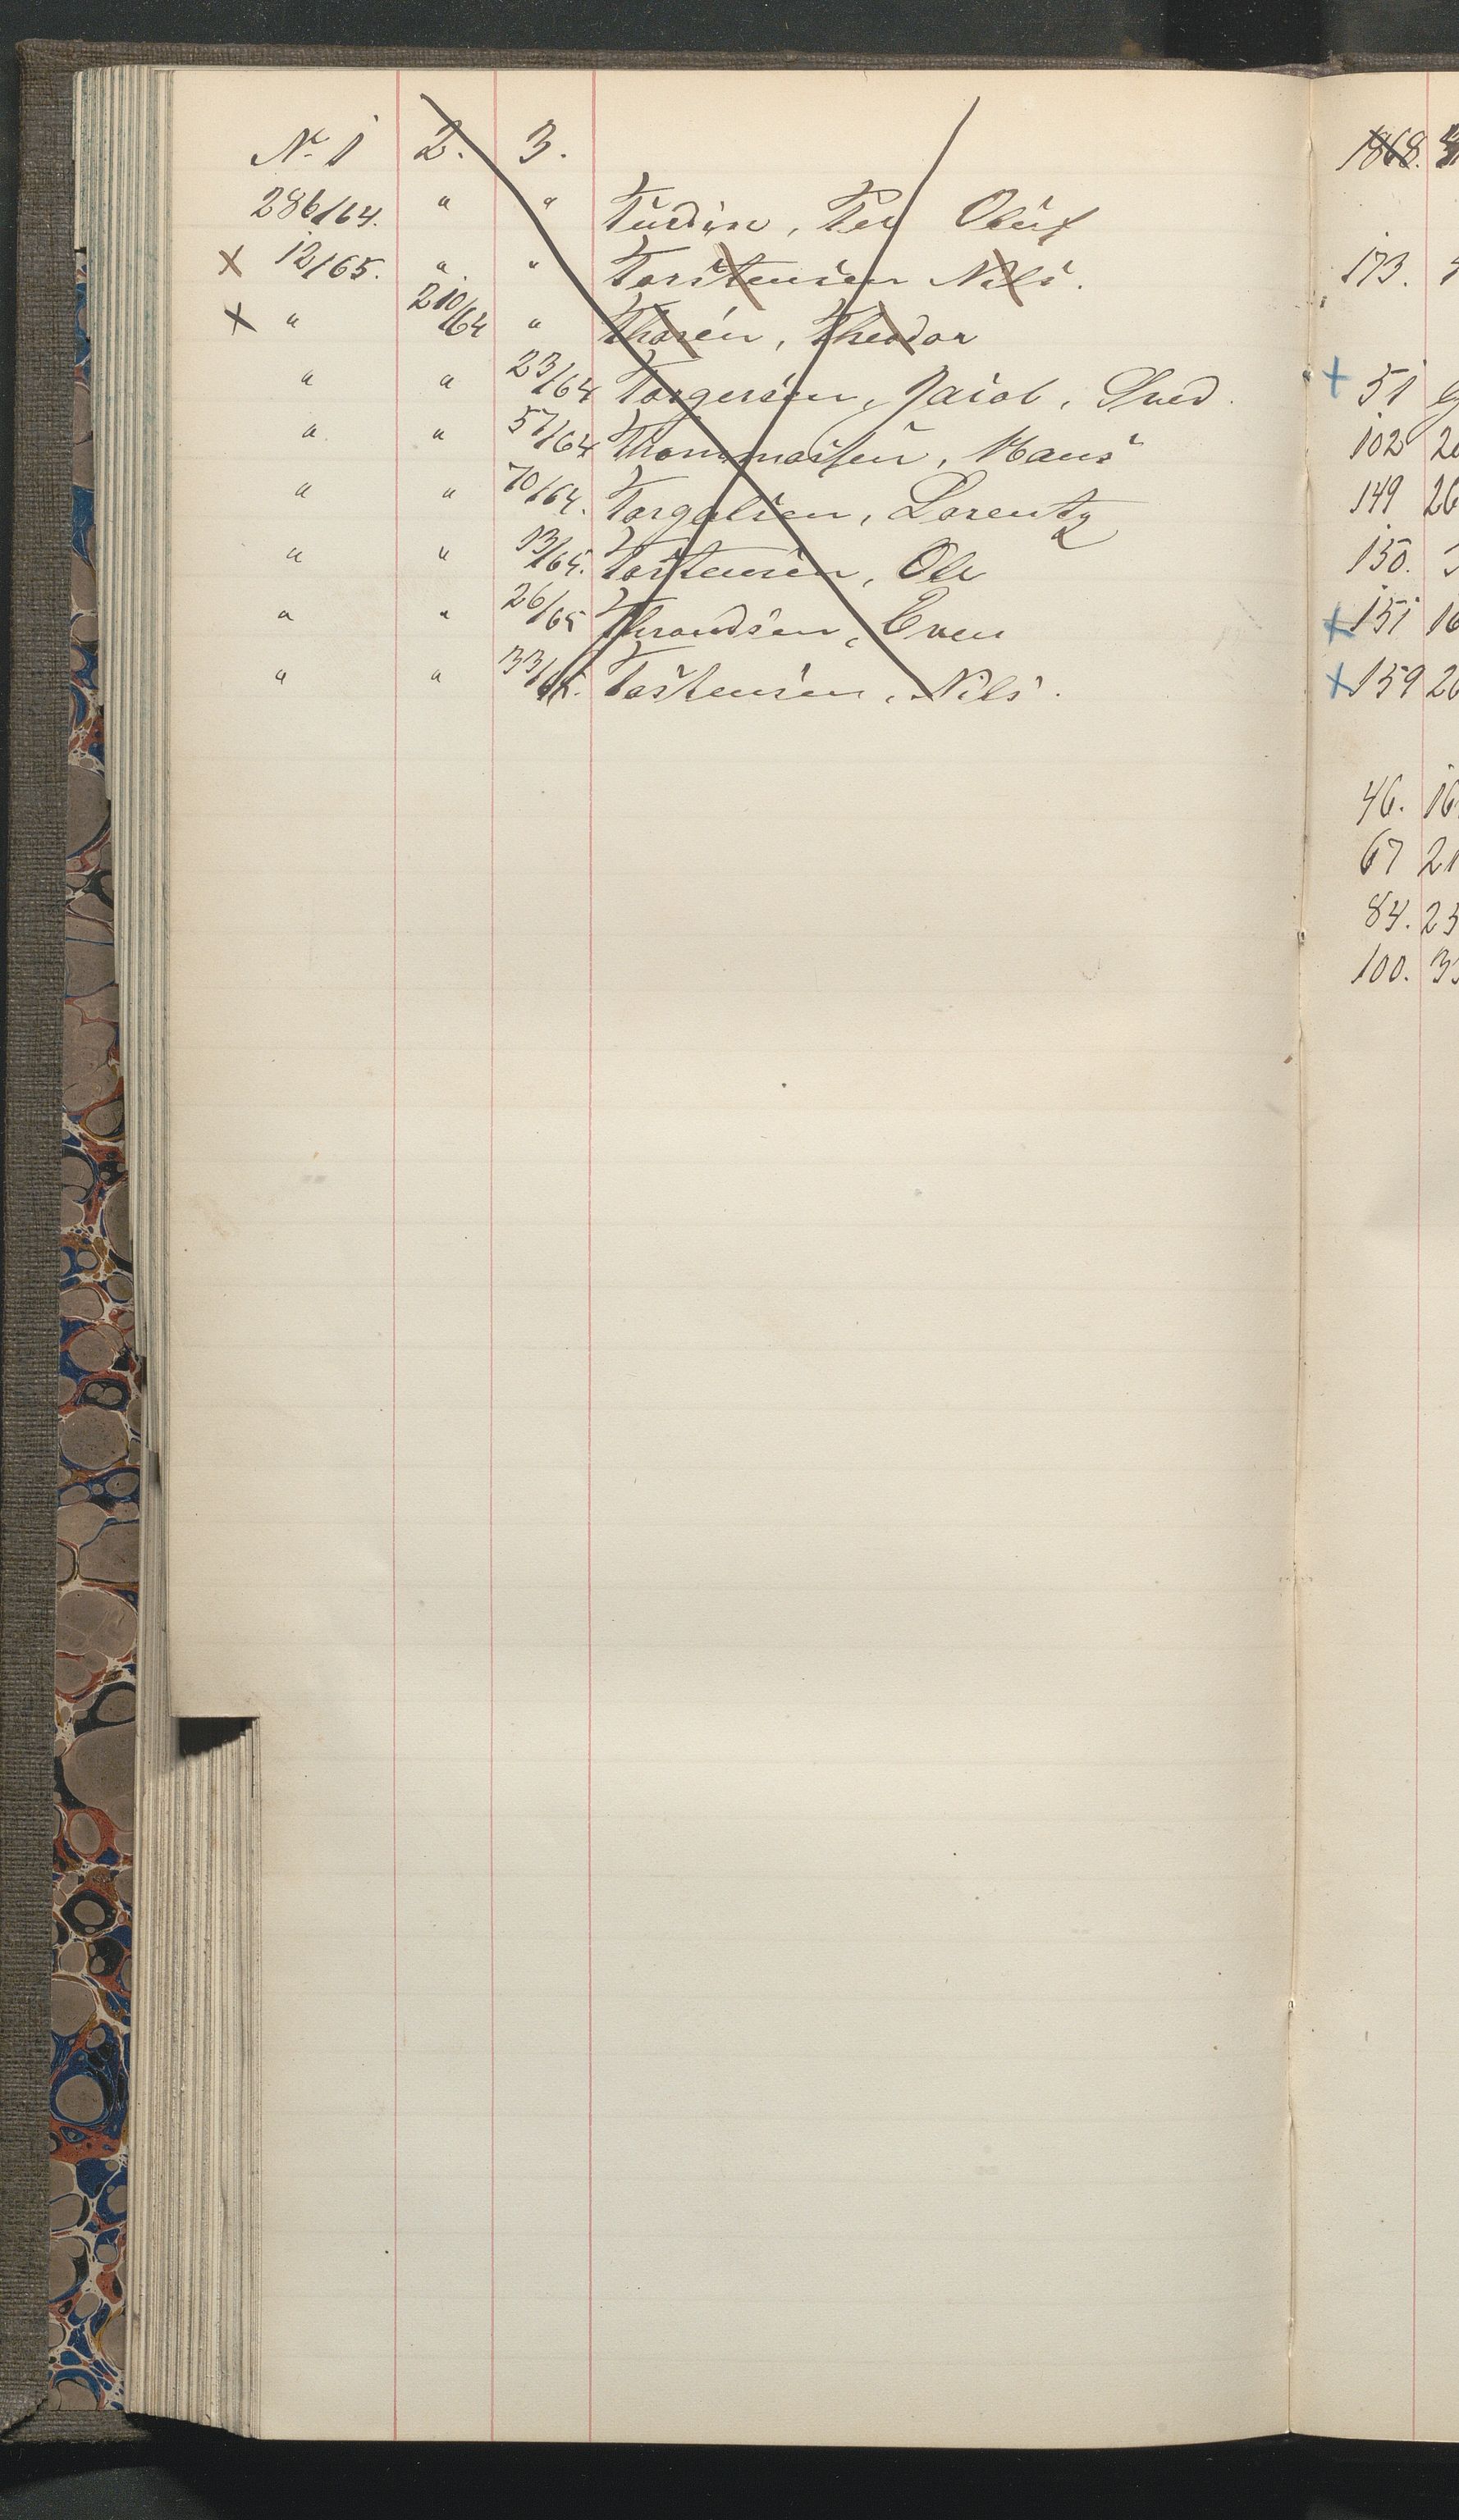 No 1 2. 3.
286/64. " " Turdin, Per Oluf
x 12/65. " " Torstensen Nils.
x " 210/64 " Thorén, Theodor
" " 23/64 Torgersen, Jacob, Sved.
" " 57/64 Thommassen, Hans
" " 70/64. Torgalsen, Lorentz
" " 13/65. Tostensen, Ole
" " 26/65 Throndsen, Even
" " 33/65. Tostensen, Nils.
1868.
173.
+ 51
102
149 26
150.
+ 151 16
+ 159 26
46. 16
67 21
84. 23
100. 33